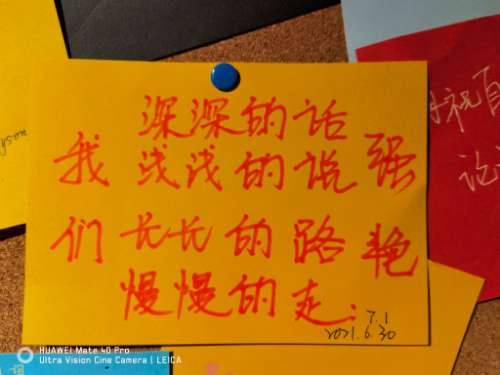 深深的话
我 浅浅的说 强
们 长长的路 艳
慢慢的走.
7.1
2021.6.30
祝
论
HUAWEI Mate 40 Pro
Ultra Vision Cine Camera | LEICA